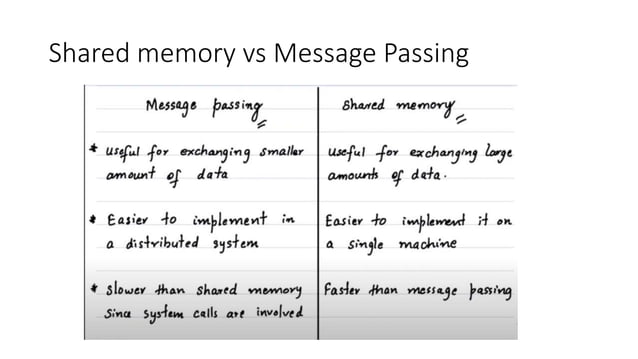 Shared memory vs Message Passing
Message passing
Shared memory
* useful for exchanging smaller
amount of data
useful for exchanging large
amounts of data.
* Easier to implement in
a distributed system
Easier to implement it on
a single machine
* slower than shared memory
Since system calls are involved
faster than message passing